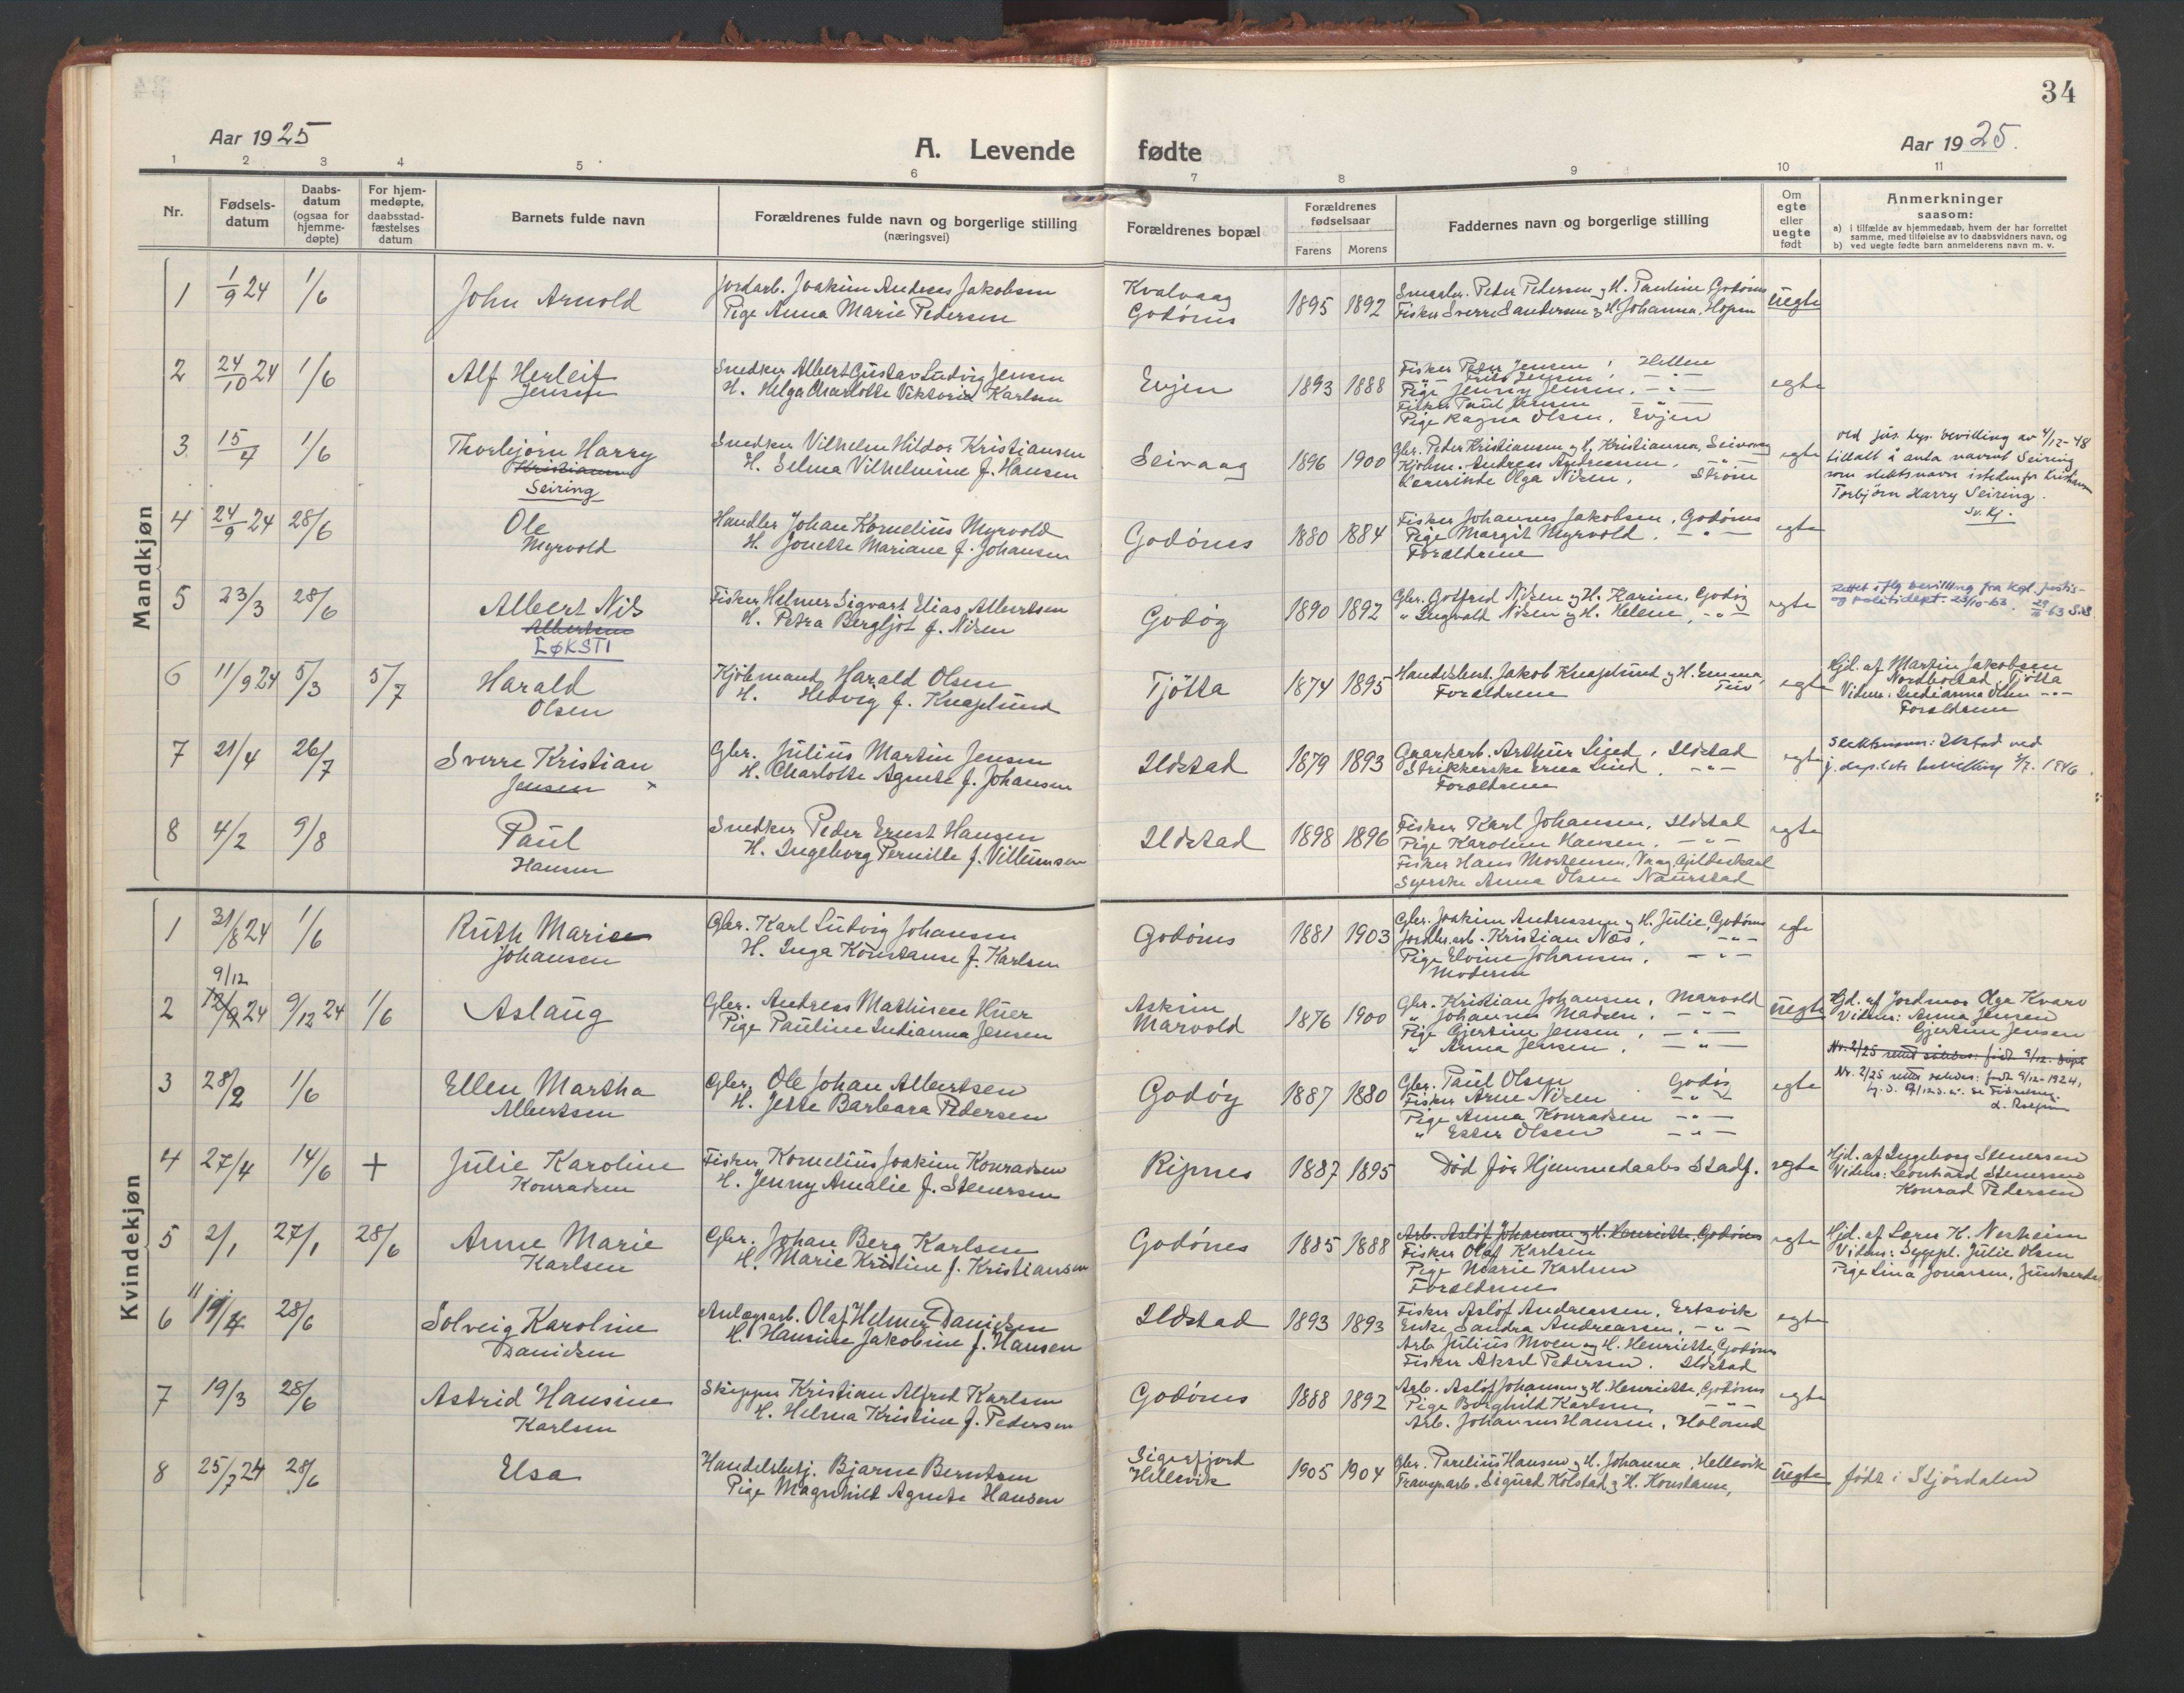 34
Aar 1925
A. Levende fødte
Aar 1925.
1 2 3 4 5 6 7 8 9 10 11
Nr.
Fødsels-
datum
Daabs-
datum
(ogsaa for
hjemme-
døpte)
For hjem-
medøpte,
daabsstad-
fæstelses
datum
Barnets fulde navn
Forældrenes fulde navn og borgerlige stilling
(næringsvei)
Forældrenes bopæl
Forældrenes
fødselsaar
Farens Morens
Faddernes navn og borgerlige stilling
Om
egte
eller
uegte
født
Anmerkninger
saasom:
a) i tilfælde av hjemmedaab, hvem der har forrettet
samme, med tilføielse av to daabsvidners navn, og
b) ved uegte fødte barn anmelderens navn m. v.
Mandkjøn
1 1/9 24 1/6 John Arnold
Jordarb. Joakim Andreas Jakobsen
Pige Anna Marie Pedersen
Kvalvaag
Godönes
1895 1892
Smaabr. Peder Pedersen og H. Pauline Godönes
Fisker Sverre Sandersen og H. Johanna, Hopen
uegte
2 24/10 24 1/6 Alf Herleif
Jensen
Snedker Albert Gustav Ludvig Jensen
H. Helga Charlotte Viktoria Karlsen
Evjen
1893 1888
Fisker Peter Jensen, Hellen
Pige Jenny Jensen, - " -
Fisker Paul Jensen - " -
Pige Ragna Olsen, Evjen
egte
3 15/4 1/6 Thorbjørn Harry
Kristiansen
Seiring
Snedker Vilhelm Hildor Kristiansen
H. Selma Vilhelmine f. Hansen
Seivaag
1896 1900
Gbr. Peder Kristiansen og H. Kristianna, Seivaag
Kjöbm. Andreas Andreassen, - " -
Lærerinde Olga Nilsen, Ström
egte
Ved jus. dep. bevilling av 4/12-48
tillatt å anta navnet Seiring
som slektsnavn istedenfor Kristiansen
Torbjörn Harry Seiring.
Sv. Kj.
4 24/9 24 28/6 Ole
Myrvold
Handler Johan Kornelius Myrvold
H. Jonette Mariane f. Johansen
Godönes
1880 1884
Fisker Johannes Jakobsen, Godönes
Pige Margit Myrvold, - " -
Forældrene
egte
5 23/3 28/6 Albert Nils
Albertsen
LØKSTI
Fisker Helmer Sigvart Elias Albertsen
H. Petra Bergljot f. Nilsen
Godöy
1890 1892
Gbr. Gotfred Nilsen og H. Karine, Godöy
" Ingvald Nilsen og H. Helene, - " -
egte
Rettet iflg bevilling fra Kgl. justis-
og politidept. 23/10-63.
6 11/9 24 5/3 5/7 Harald
Olsen
Kjöbmand Harald Olsen
H. Hedvig f. Knaplund
Tjötta
1874 1895
Handelsbest. Jakob Knaplund og H. Emma,
Forældrene
egte
Hjd. af Martin Jakobsen
Nordbostad, Tjötta
Vidner: Indianna Olsen - " -
Forældrene
7 21/4 26/7 Sverre Kristian
Jensen x
Gbr. Julius Martin Jensen
H. Charlotte Agnete f. Johansen
Ildstad
1879 1893
Gaardarb. Arthur Lind, Ildstad
Strikkerske Erna Lind, - " -
Forældrene
egte
Slektsnavn: Ilstad ved
j. dep. bevilling 1946.
8 4/2 9/8 Paul
Hansen
Snedker Peder Ernst Hansen
H. Ingeborg Pernille f. Villumsen
Ildstad
1898 1896
Fisker Karl Johansen, Ildstad
Pige Karoline Hansen, - " -
Fisker Hans Mortensen, Vaag, Gildeskaal
Syerske Anna Olsen Naurstad
egte
Kvindekjøn
1 31/8 24 1/6 Ruth Marie
Johansen
Gbr. Karl Ludvig Johansen
H. Inga Konstanse f. Karlsen
Godönes
1881 1903
Gbr. Joakim Andreassen og H. Julie, Godönes
Jordbr.arb. Kristian Næs, - " -
Pige Elvine Johansen, - " -
Moderen
egte
9/12
2 12/9 24 9/12 24 1/6 Aslaug
Gbr. Andreas Mathisen Huer
Pige Pauline Indianna Jensen
Askim
Marvold
1876 1900
Gbr. Kristian Johansen, Marvold
" Johannes Madsen, - " -
Pige Gjertine Jensen, - " -
" Anna Jensen, - " -
uegte
Hjd. af Jordmor Olga Kvarv
Vidner: Anna Jensen
Gjertine Jensen
Nr. 2/25 rettet således: født 9/12. døpt
Nr. 2/25 rettet således: født 9/12-1924,
3 28/2 1/6 Ellen Martha
Albertsen
Gbr. Ole Johan Albertsen
H. Jette Barbara Pedersen
Godöy
1887 1880
Gbr. Paul Olsen Godöy
Fisker Arne Nilsen - " -
Pige Anna Konradsen - " -
" Ester Olsen - " -
egte
4 27/4 14/6 + Julie Karoline
Konradsen
Fisker Kornelius Joakim Konradsen
H. Jenny Amalie f. Stenersen
Ripnes
1887 1895
Död för Hjemmedaabs Stadf.
egte
Hjd. af Ingeborg Stenersen
Vidner: Leonhard Stenersen
Konrad Pedersen
5 2/1 27/1 28/6 Anne Marie
Karlsen
Gbr. Johan Berg Karlsen
H. Marie Kristine f. Kristiansen
Godönes
1885 1888
Arb. Aslof Johansen og H. Henriette, Godönes
Fisker Olaf Karlsen
Pige Marie Karlsen
Forældrene
egte
Hjd. af Lars K. Nesheim
Vidner: Sygepl. Julie Olsen
Pige Lina Jonassen, Junkerdal
6 19/4 28/6 Solveig Karoline
Danielsen
Anlægsarb. Olaf Helmer Danielsen
H. Hansine Jakobine f. Hansen
Ildstad
1893 1893
Fisker Aslof Andreassen, Ertsvik
Enke Sandra Andreassen, - " -
Arb. Julius Moen og H. Henriette, Godönes
Fisker Aksel Pedersen, Ildstad
egte
7 19/3 28/6 Astrid Hansine
Karlsen
Skipper Kristian Alfred Karlsen
H. Helma Kristine f. Pedersen
Godönes
1888 1892
Arb. Aslof Johansen og H. Henriette, Godönes
Pige Borghild Karlsen, - " -
Arb. Johannes Hansen, Haland
egte
8 25/7 24 28/6 Elsa
Handelsbetj. Bjarne Berntsen
Pige Magnhild Agnete Hansen
Sigerfjord
Hellevik
1905 1904
Gbr. Parelius Hansen og H. Johanna, Hellevik
Transp.arb. Sigurd Kolstad og H. Konstanse,
uegte
født i Stjördalen